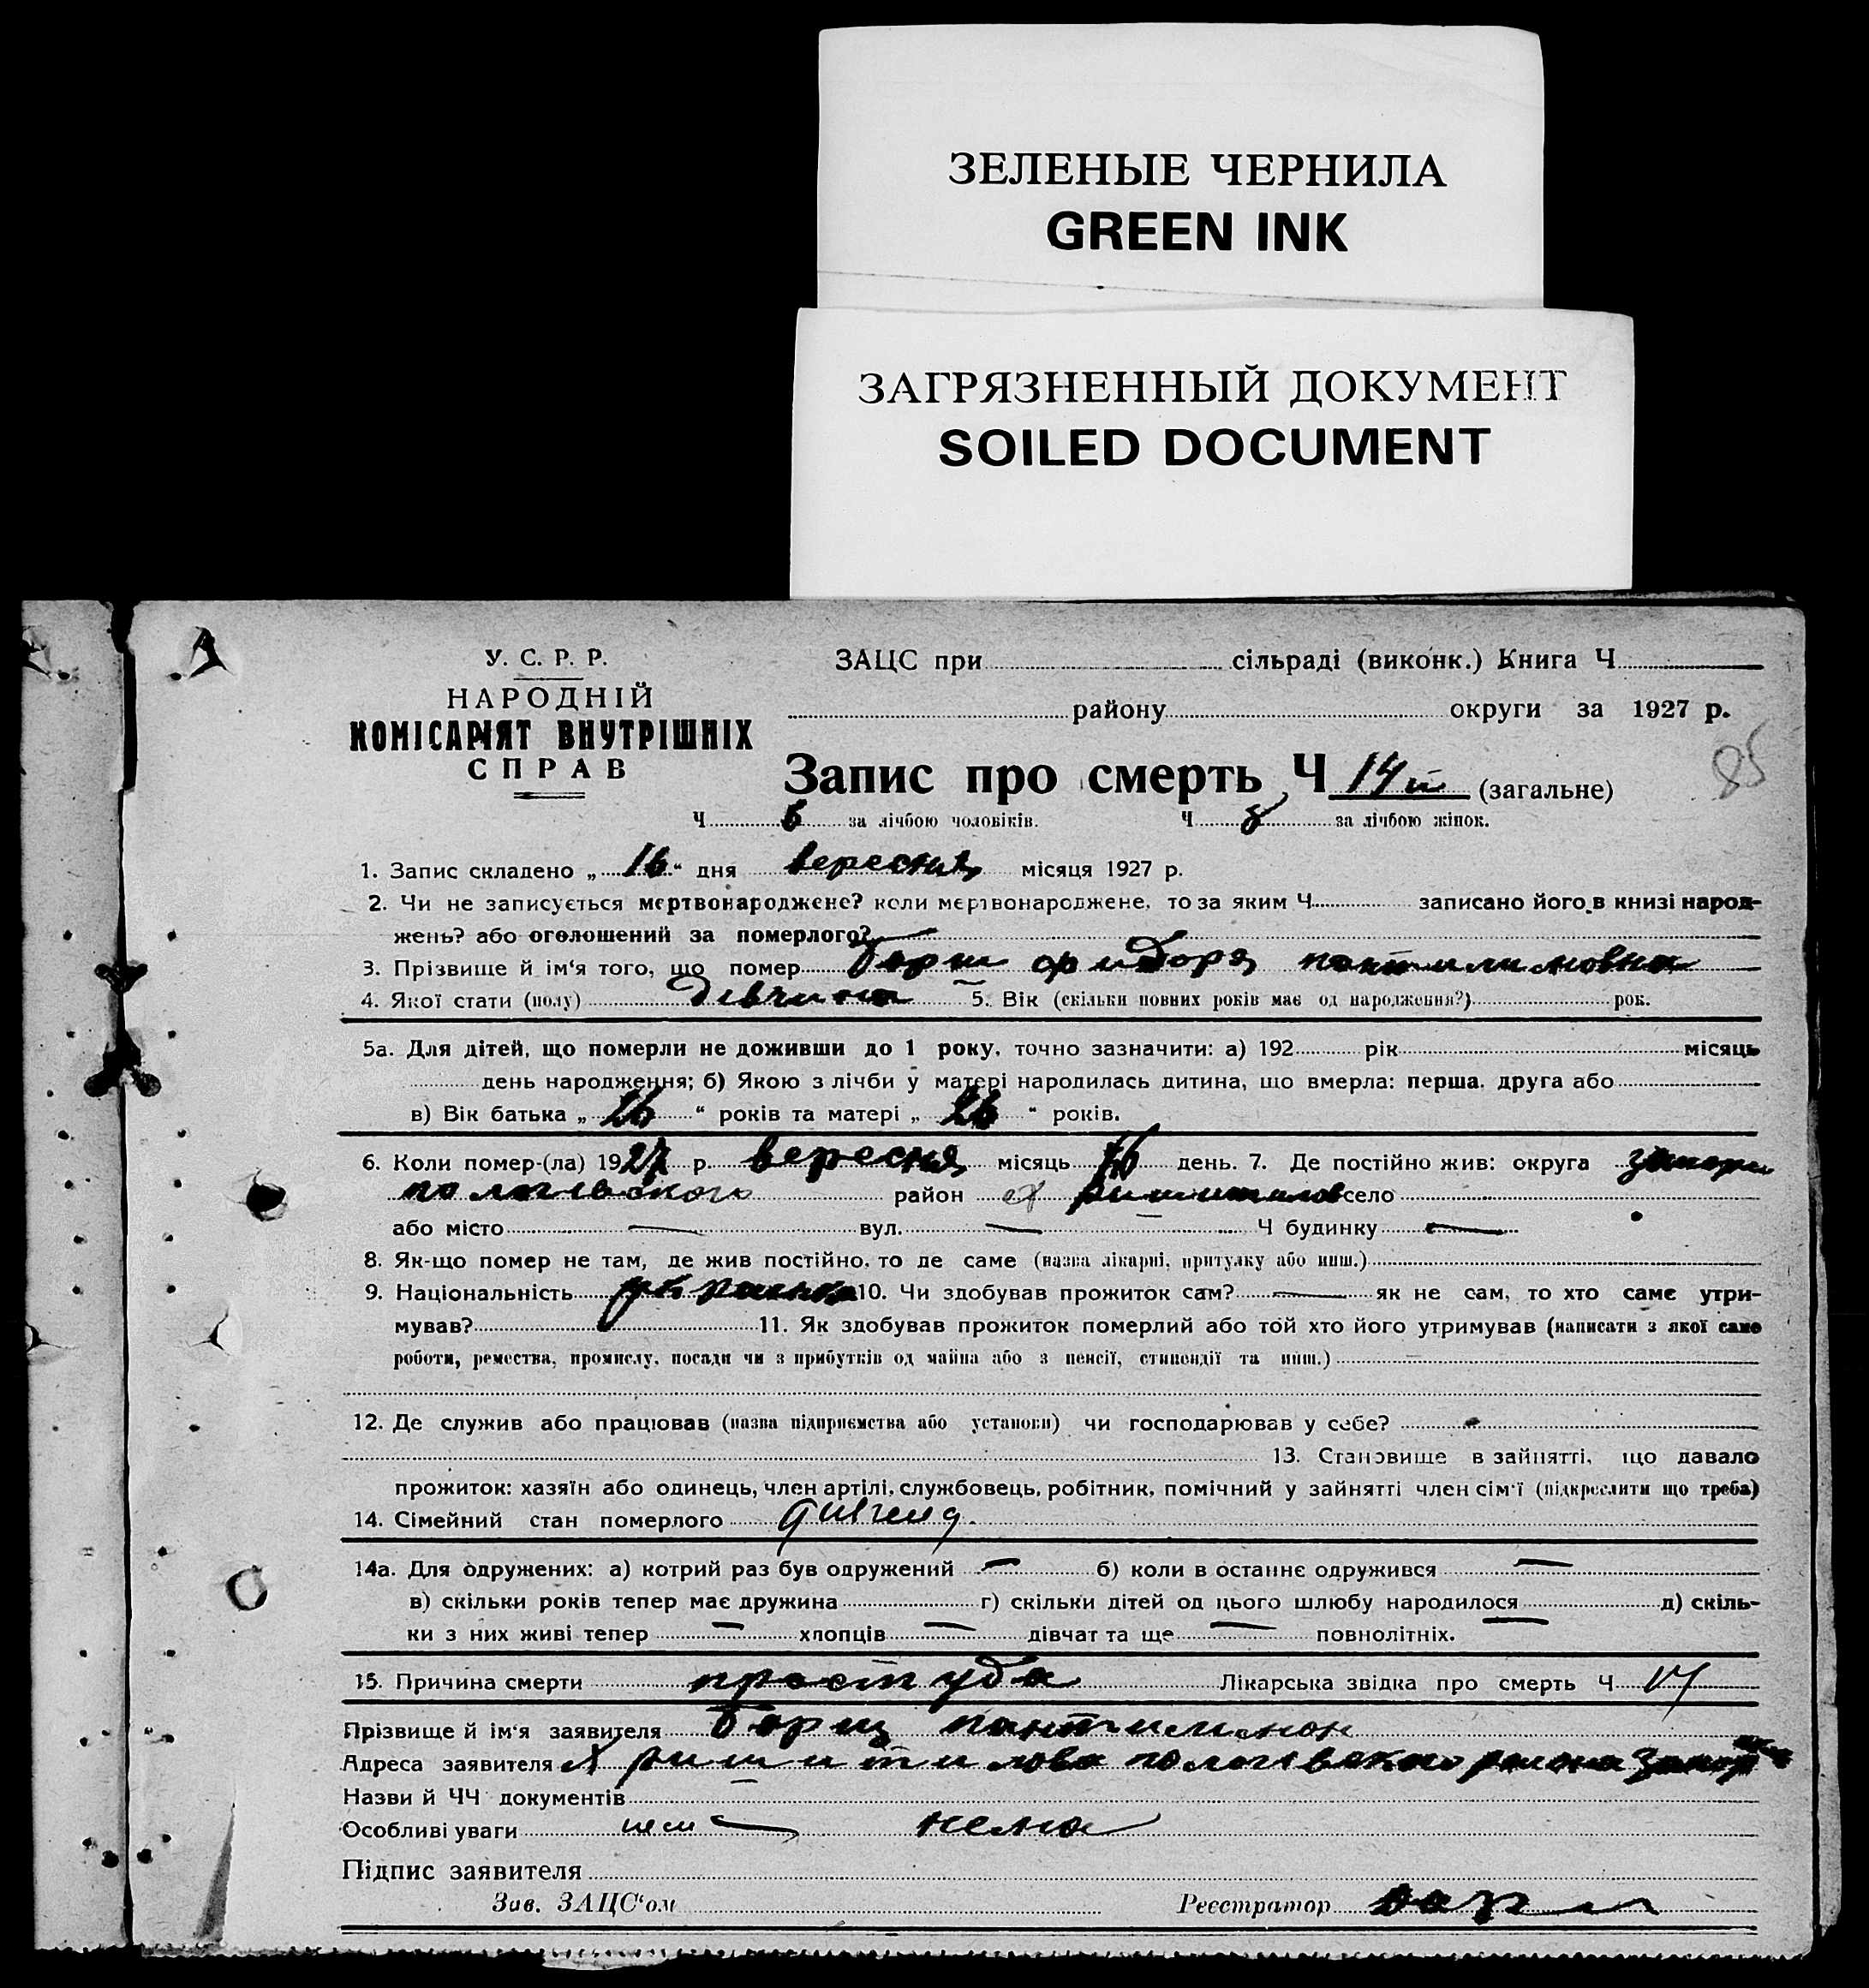 ЗЕЛЕНЫЕ ЧЕРНИЛА
GREEN INK
ЗАГРЯЗНЕННЫЙ ДОКУМЕНТ
SOILED DOCUMENT
У. С. Р. Р.
НАРОДНІЙ
КОМІСАРІЯТ ВНУТРІШНІХ
СПРАВ
ЗАЦС при сільраді (виконк.) Книга Ч
району округи за 1927 р.
85
Запис про смерть Ч 14й (загальне)
Ч 6 за лічбою чоловіків. Ч 8 за лічбою жінок.
1. Запис складено „ 16 “ дня вересня місяця 1927 р.
2. Чи не записується мертвонароджене? коли мертвонароджене, то за яким Ч. записано його в книзі народ-
жень? або оголошений за померлого?
3. Прізвище й ім‘я того, що помер Борщ
4. Якої стати (полу) девчина 5. Вік (скільки повних років має од народження?) рок.
5а. Для дітей, що померли не доживши до 1 року, точно зазначити: а) 192 рік місяць
день народження; б) Якою з лічби у матері народилась дитина, що вмерла: перша, друга або
в) Вік батька „ 26 “ років та матері „ 26 “ років.
6. Коли помер-(ла) 1927 р. вересня місяць 16 день. 7. Де постійно жив: округа
район село
або місто — вул. — Ч будинку —
8. Як-що помер не там, де жив постійно, то де саме (назва лікарні, притулку або инш.)
9. Національність 10. Чи здобував прожиток сам? — як не сам, то хто саме утри-
мував? 11. Як здобував прожиток померлий або той хто його утримував (написати з якої саме
роботи, ремества, промислу, посади чи з прибутків од майна або з пенсії, стипендії та инш.)
12. Де служив або працював (назва підприємства або установи) чи господарював у себе?
13. Становище в зайнятті, що давало
прожиток: хазяїн або одинець, член артілі, службовець, робітник, помічний у зайнятті член сім‘ї (підкреслити що треба)
14. Сімейний стан померлого
14а. Для одружених: а) котрий раз був одружений — б) коли в останнє одружився —
в) скільки років тепер має дружина г) скільки дітей од цього шлюбу народилося — д) скіль-
ки з них живі тепер — хлопців — дівчат та ще — повнолітніх.
15. Причина смерти простуда Лікарська звідка про смерть Ч
Прізвище й ім‘я заявителя Борщ
Адреса заявителя х
Назви й ЧЧ документів
Особливі уваги нема
Підпис заявителя
Зав. ЗАЦС‘ом Реєстратор